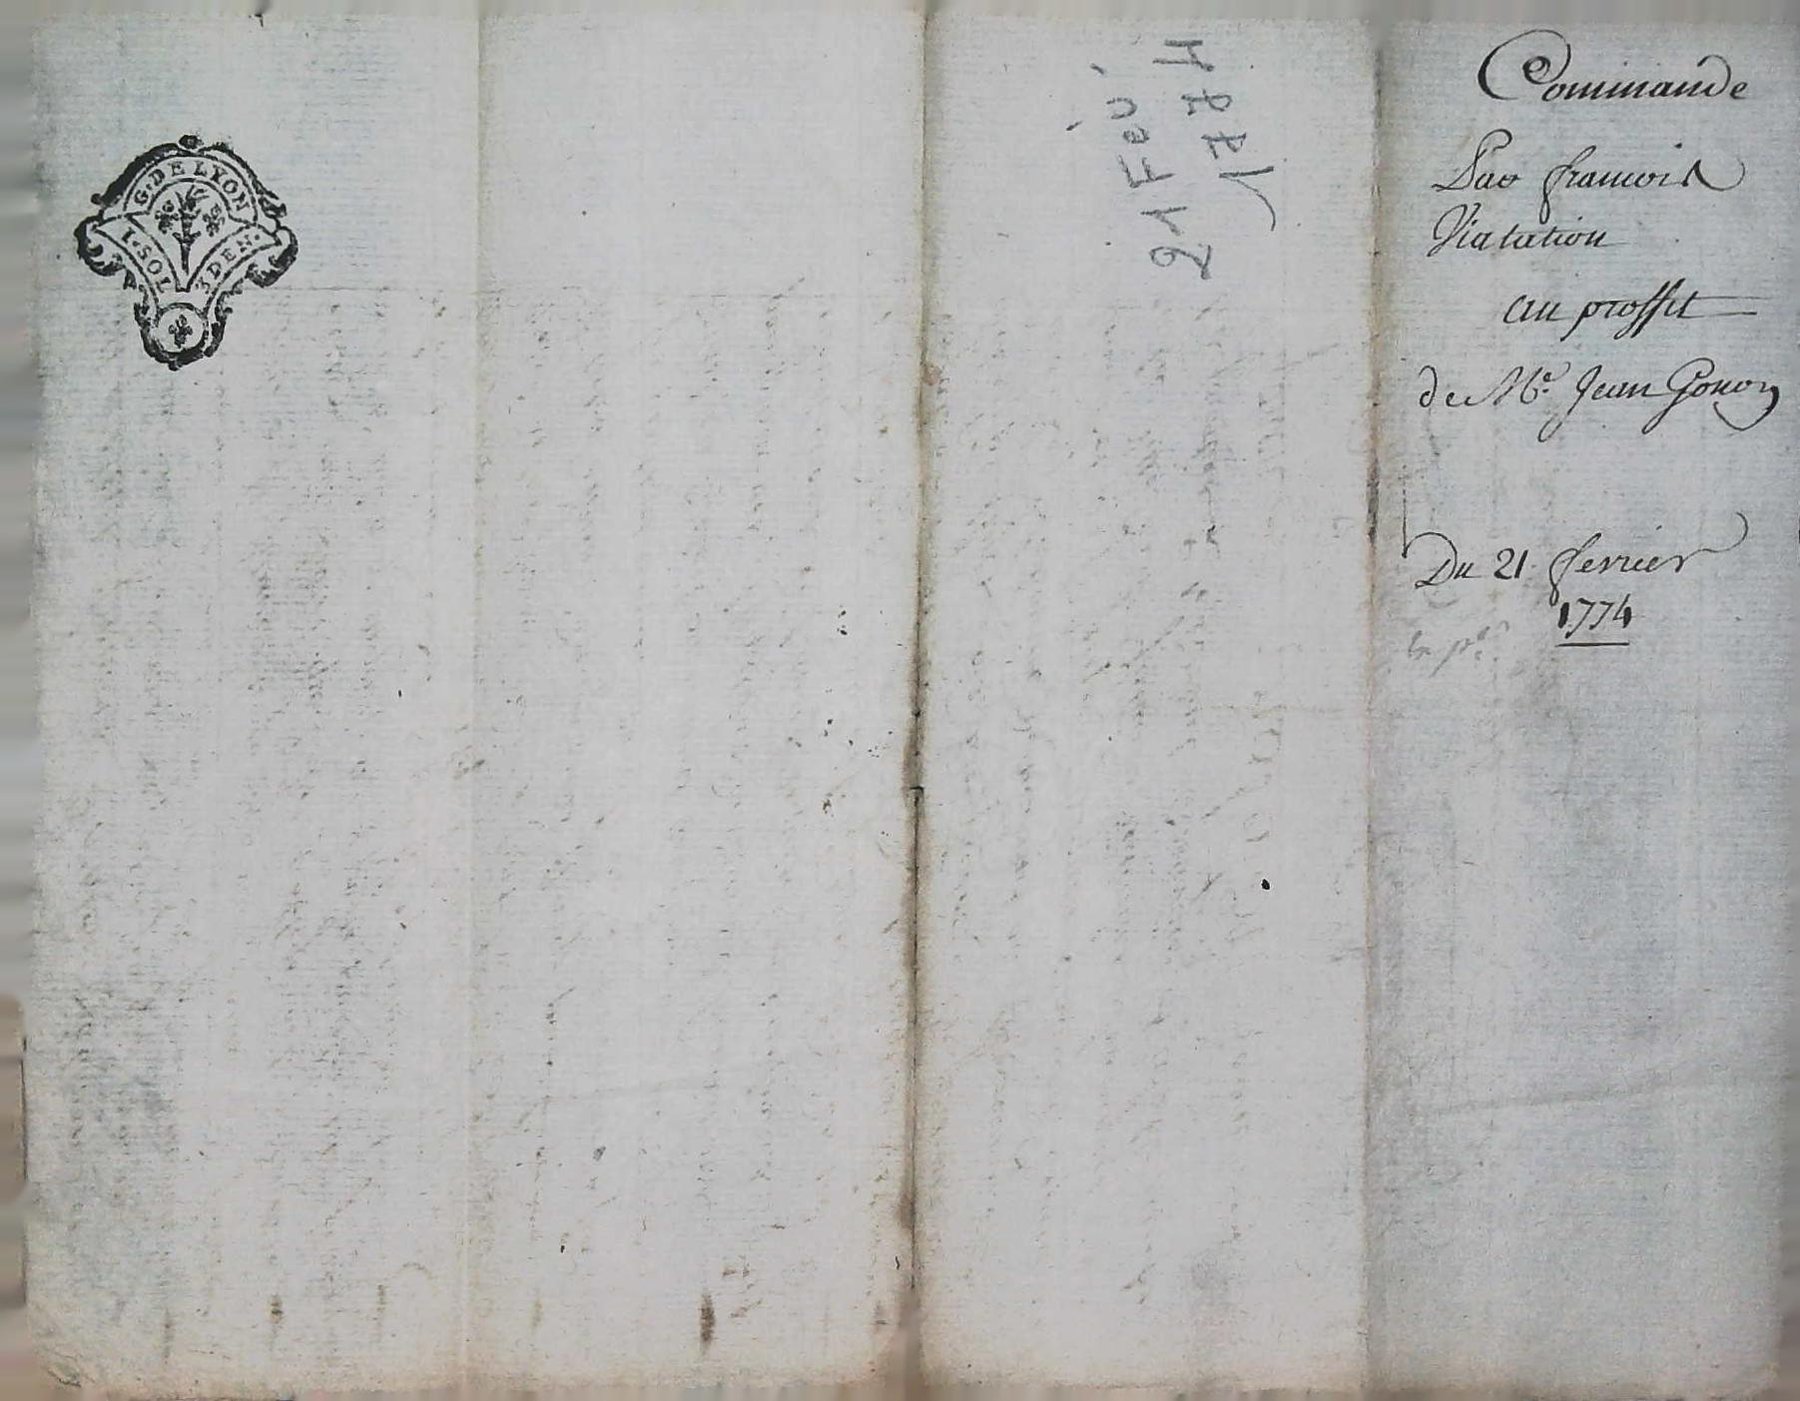 G. DE LYON
1. SOL 3 DEN.
21 Fev
1774
Commande
Pao francois
Viatation
au proffit
de Mre. Jean Gonon
Du 21 fevrier
1774